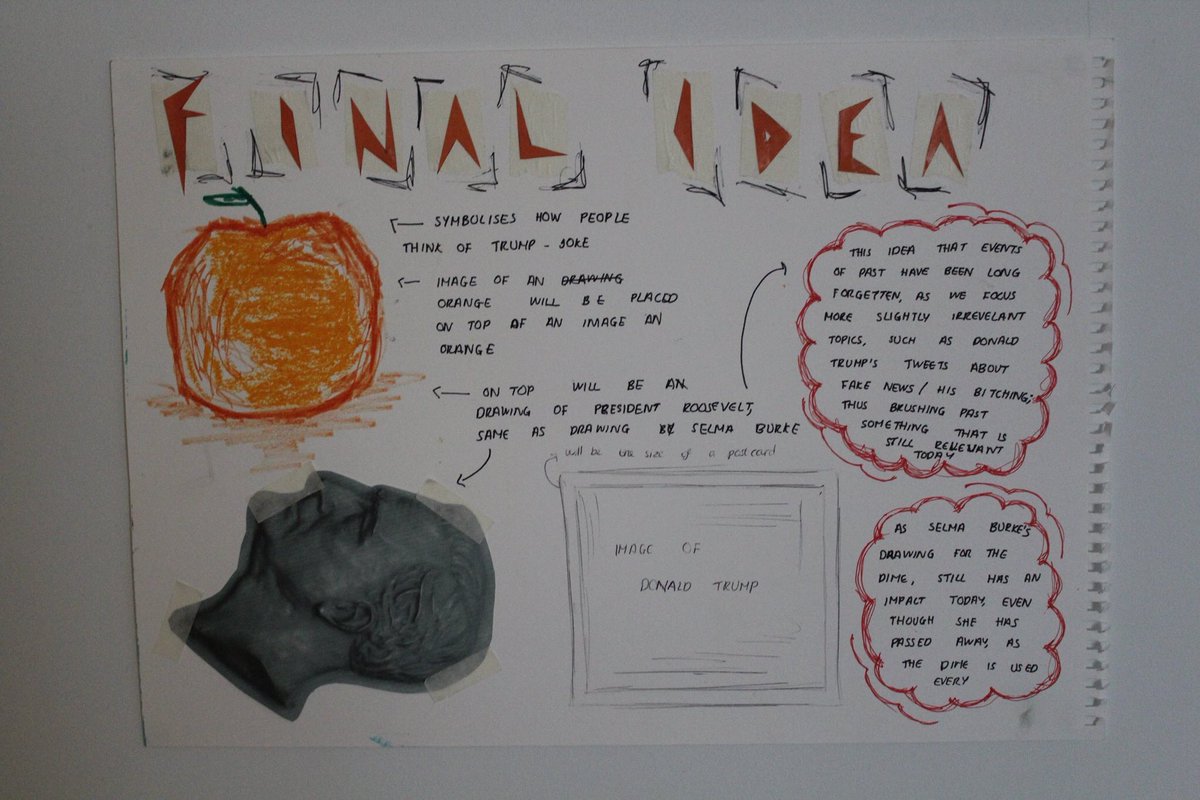 FINAL IDEA
SYMBOLISES HOW PEOPLE
THINK OF TRUMP - JOKE
IMAGE OF AN DRAWING
ORANGE WILL BE PLACED
ON TOP OF AN IMAGE AN
ORANGE
ON TOP WILL BE AN
DRAWING OF PRESIDENT ROOSEVELT,
SAME AS DRAWING BY SELMA BURKE
will be the size of a postcard
IMAGE OF
DONALD TRUMP
THIS IDEA THAT EVENTS
OF PAST HAVE BEEN LONG
FORGETTEN, AS WE FOCUS
MORE SLIGHTLY IRREVELANT
TOPICS, SUCH AS DONALD
TRUMP'S TWEETS ABOUT
FAKE NEWS / HIS BITCHING;
THUS BRUSHING PAST
SOMETHING THAT IS
STILL RELEVANT
TODAY
AS SELMA BURKE'S
DRAWING FOR THE
DIME, STILL HAS AN
IMPACT TODAY, EVEN
THOUGH SHE HAS
PASSED AWAY, AS
THE DIME IS USED
EVERY